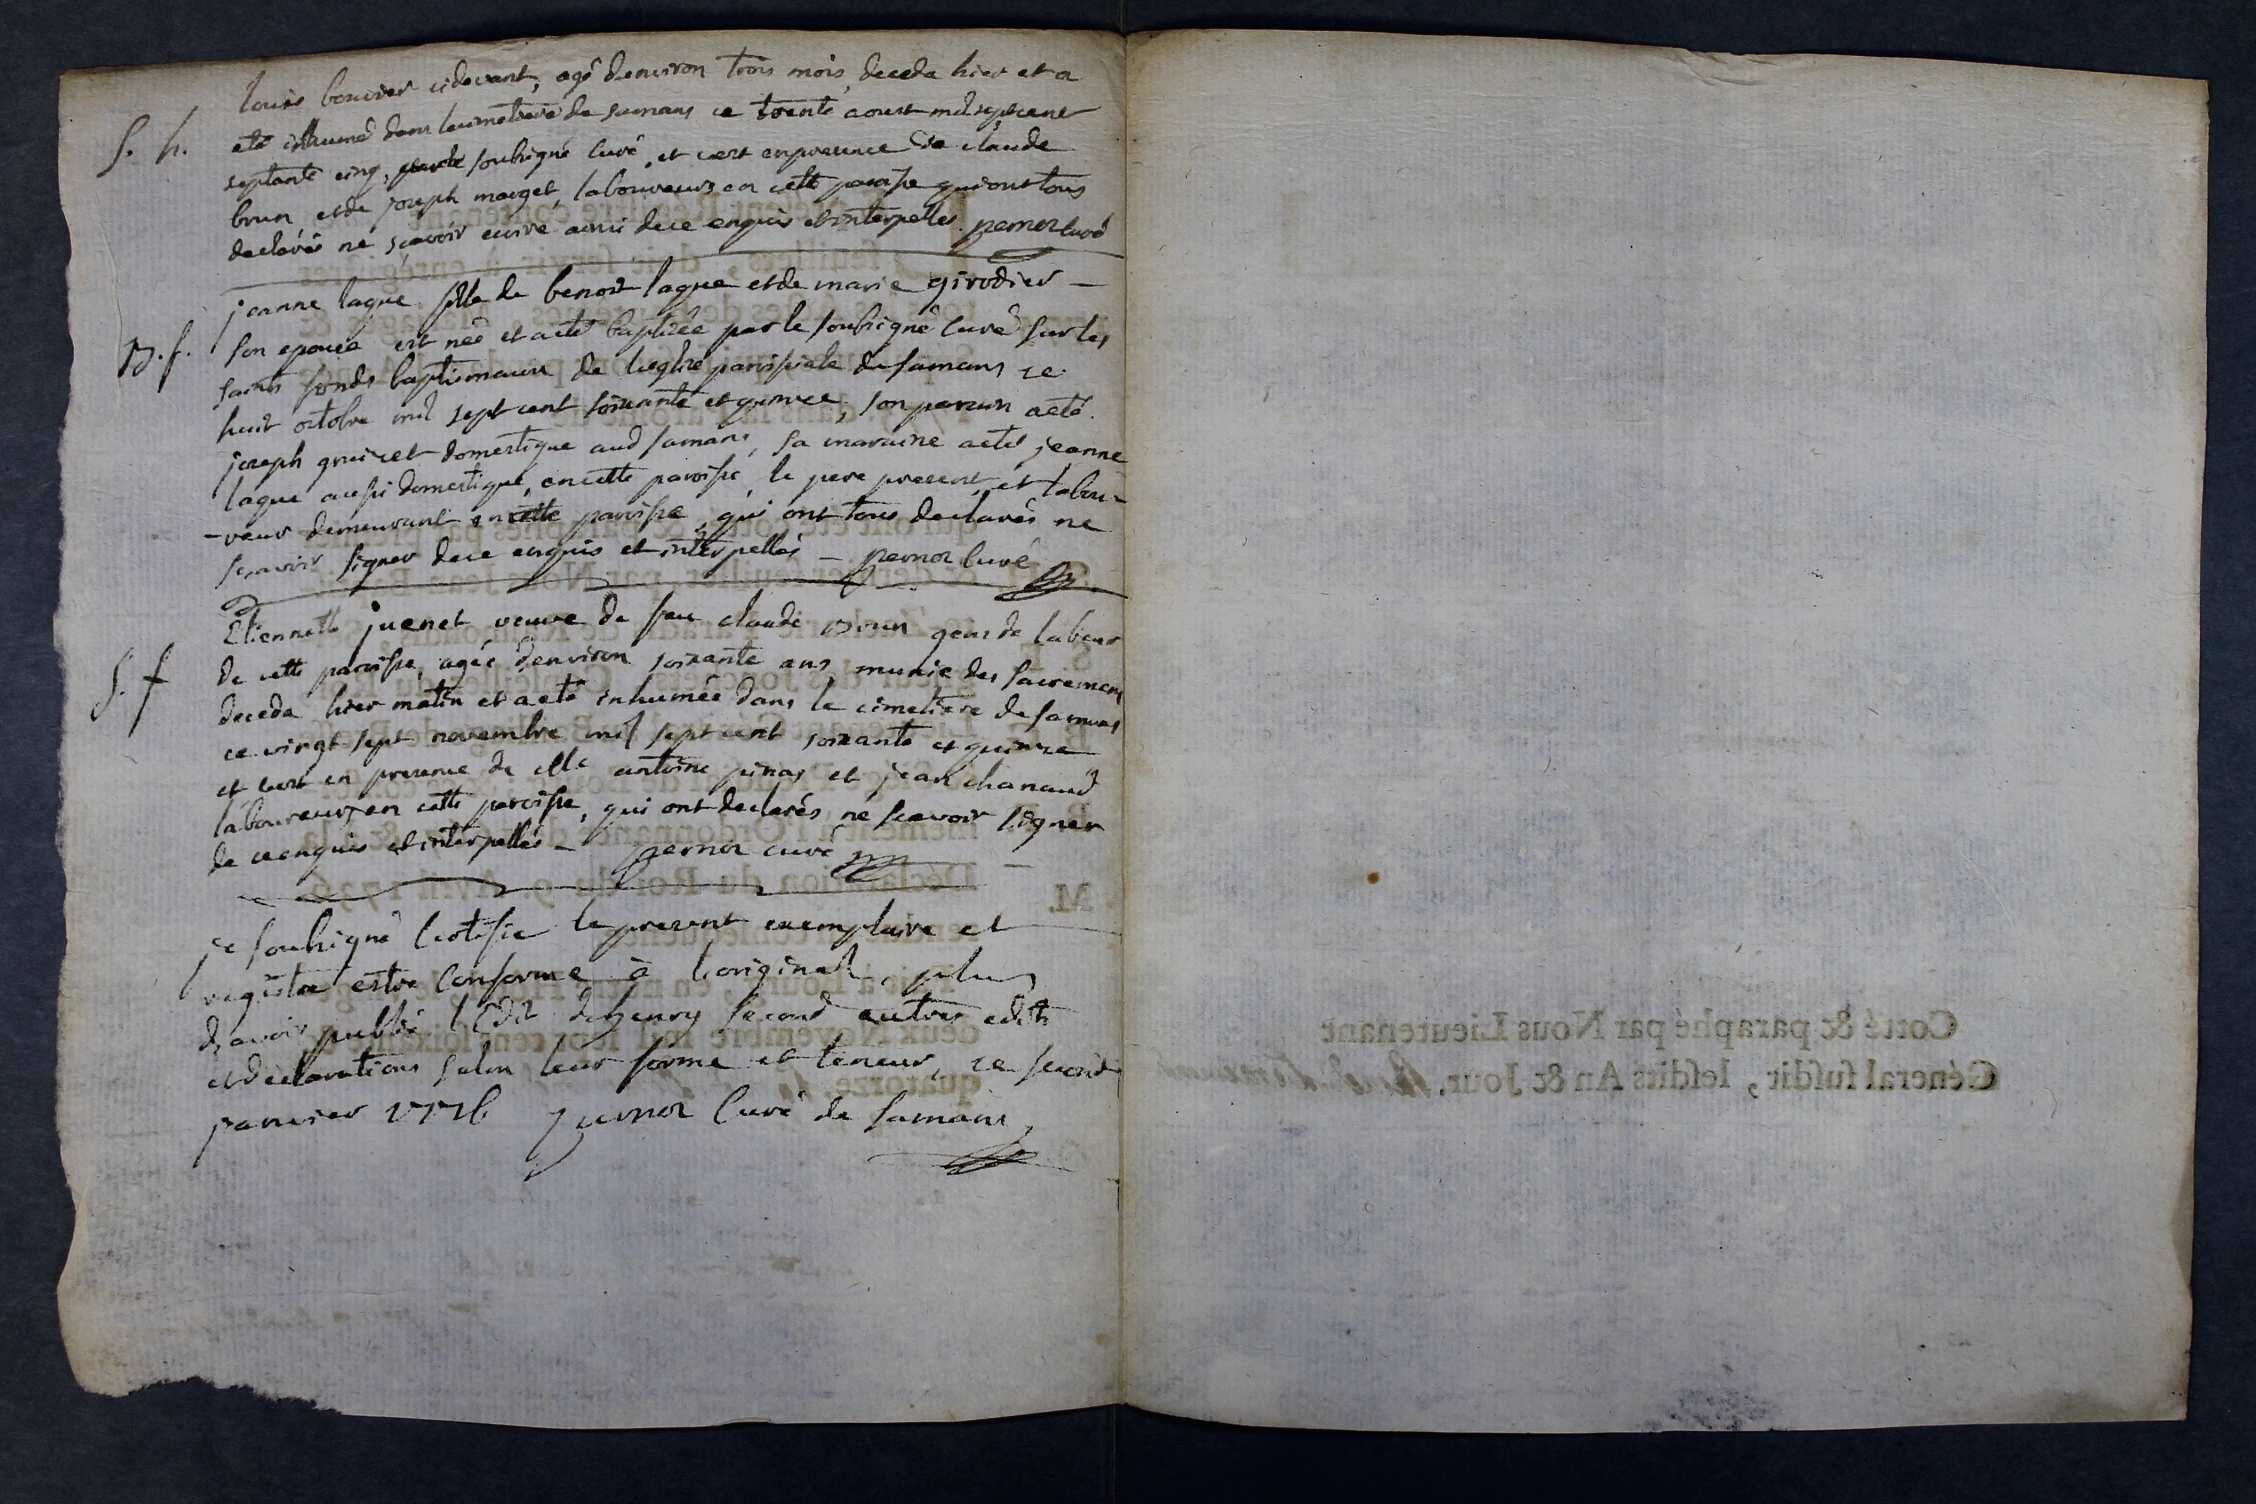 louis bouvier cidevant, agé denviron trois mois, deceda hier et a
S. h.
eté inhumé dans le cimetiere de samans ce trente aoust mil sept cent
septante cinq, par le soubsigné curé, et c'est en presence de claude
brun et de joseph marget, laboureurs en cette paroisse qui ont tous
declarés ne sçavoir ecrire ainsi dece enquis et interpelles. pernoz curé
jeanne laque fille de benoit laque et de marie girodier –
B. f.
son epouse est née et a eté baptisée par le soubsigné curé sur les
saints fonds baptismaux de l'eglise paroissiale de samans ce
huit octobre mil sept cent soixante et quinze, son parrain a eté
joseph domestique aud samans, sa maraine a eté jeanne
laque aussi domestique, en cette paroisse, le pere present et labou-
-reur demeurant en cette paroisse, qui ont tous declarés ne
scavoir signer dece enquis et interpellés – pernoz curé
Etiennette juenet veuve de feu claude gens de labeur
S. f
de cette paroisse, agée d'environ soixante ans, munie des sacremens
deceda hier matin et a eté inhumée dans le cimetiere de samans
ce vingt sept novembre mil sept cent soixante et quinze
et c'est en presence de antoine et jean chanaud
laboureurs en cette paroisse, qui ont declarés ne scavoir signer
de ce enquis et interpellés – pernoz curé
je soubsigné certifie le present exemplaire et
registre estre conforme à l'original, plus
d'avoir publié l'Edit de henry second autres edits
et declarations selon leur forme et teneur, ce second
janvier 1776 pernoz curé de samans
Cotté & paraphé par Nous Lieutenant
Général susdit, lesdits An & Jour.